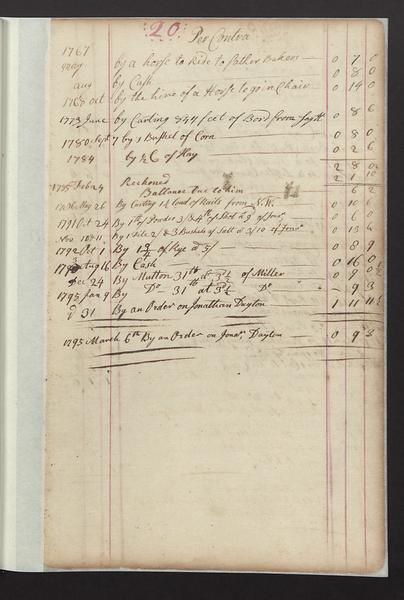 20
Per Contra
1767
May by a horse to Ride to father Bakers — 0 7 0
aug by Cash 0 8 0
1768 oct by the hire of a Horse to go in Chair 0 14 0
1773 June by Carting 844 feet of Bord from 0 8 6
1780 Sept 7 by 1 Bushel of Corn 0 8 0
1784 by ½ C of Hay 0 2 6
2 8 0
1785 Feb 24 Reckoned 2 1 10
Ballance Due to him 6 2
May 26 By Carting 1 Load of Rails from S.W. 0 10 6
1791 Oct 24 By 1 lb of Powder 3/ & 4 lb of Shot a 9 of 0 6 0
Nov 10 By 2/ & 3 Bushels of Salt at 3/10 of 0 13 6
1792 Oct 1 By 1 3/4 of Rye a 5/ — 0 8 9
Aug 16 By Cash 0 16 0
Dec 24 By Mutton 31 lb at 3½ of Miller 0 9 0½
1795 Jan 9 By Do 31 lb at 3½ Do — 9 3
d 31 By an Order on Jonathan Dayton 1 11
1795 March 6th By an Order on Jonan Dayton — 0 9 3